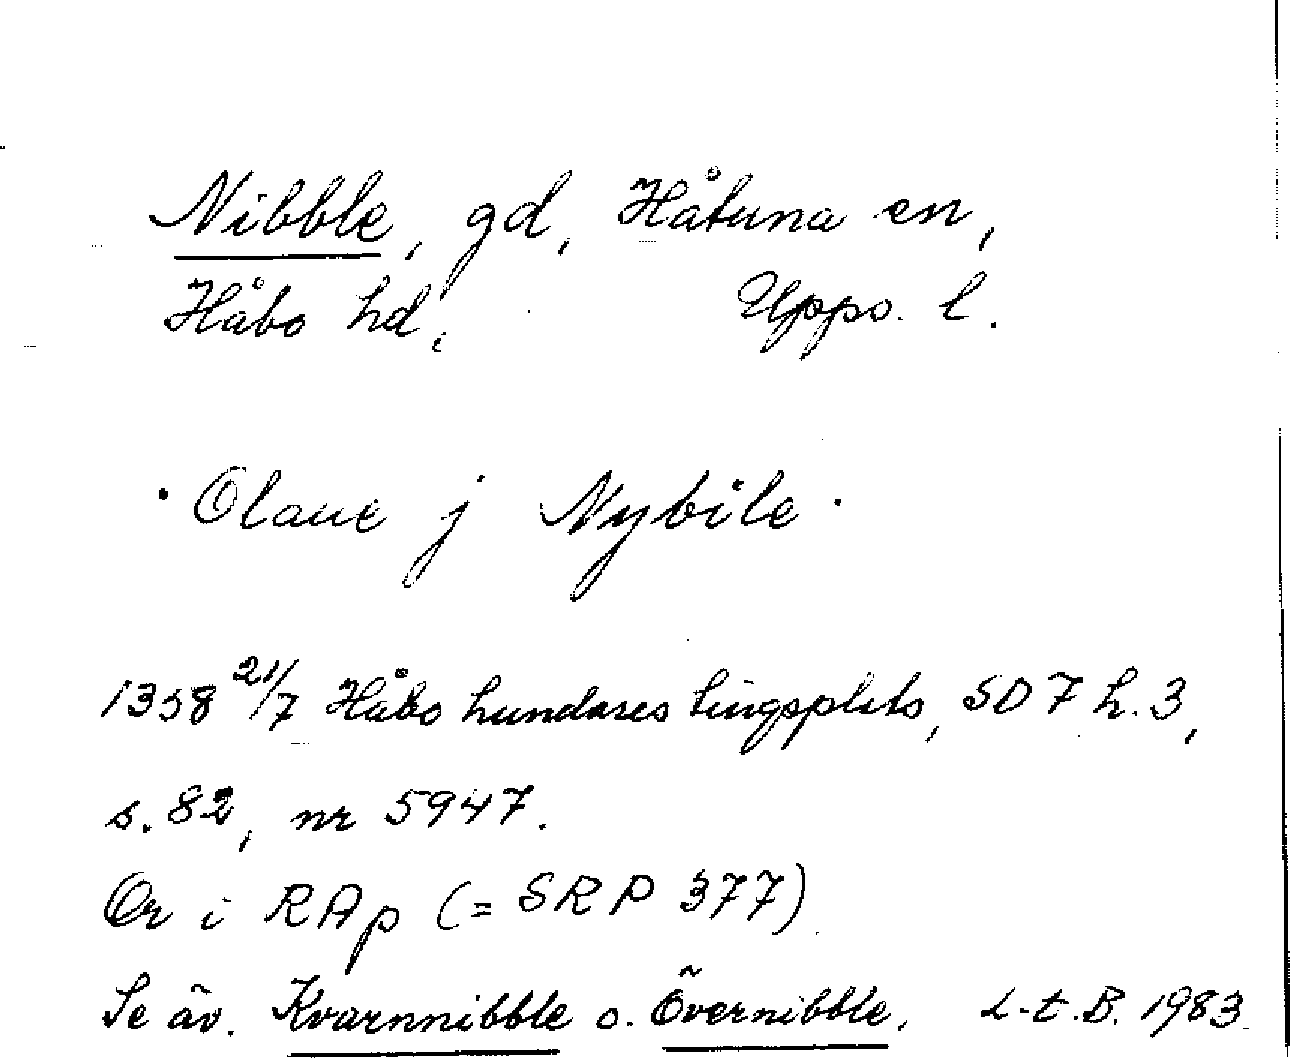 Nibble, gd, Håtuna sn,
Håbo hd, Upps. l.
· Olaue j Nybile ·
1358 21/7 Håbo hundares tingsplats, SD 7 h. 3,
s. 82, nr 5947.
Or i RAp (= SRP 377)
Se äv. Kvarnnibble o. Övernibble. L-t.B. 1983